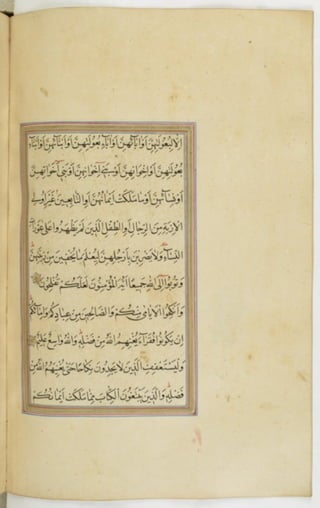 إِلَّا لِبُعُولَتِهِنَّ أَوْ آبَائِهِنَّ أَوْ آبَاءِ بُعُولَتِهِنَّ أَوْ أَبْنَائِهِنَّ أَوْ أَبْنَاءِ
بُعُولَتِهِنَّ أَوْ إِخْوَانِهِنَّ أَوْ بَنِي إِخْوَانِهِنَّ أَوْ بَنِي أَخَوَاتِهِنَّ
أَوْ نِسَائِهِنَّ أَوْ مَا مَلَكَتْ أَيْمَانُهُنَّ أَوِ التَّابِعِينَ غَيْرِ أُولِي
الْإِرْبَةِ مِنَ الرِّجَالِ أَوِ الطِّفْلِ الَّذِينَ لَمْ يَظْهَرُوا عَلَى عَوْرَاتِ
النِّسَاءِ وَلَا يَضْرِبْنَ بِأَرْجُلِهِنَّ لِيُعْلَمَ مَا يُخْفِينَ مِنْ زِينَتِهِنَّ
وَتُوبُوا إِلَى اللَّهِ جَمِيعًا أَيُّهَ الْمُؤْمِنُونَ لَعَلَّكُمْ تُفْلِحُونَ
وَأَنْكِحُوا الْأَيَامَى مِنْكُمْ وَالصَّالِحِينَ مِنْ عِبَادِكُمْ وَإِمَائِكُمْ
إِنْ يَكُونُوا فُقَرَاءَ يُغْنِهِمُ اللَّهُ مِنْ فَضْلِهِ وَاللَّهُ وَاسِعٌ عَلِيمٌ
وَلْيَسْتَعْفِفِ الَّذِينَ لَا يَجِدُونَ نِكَاحًا حَتَّى يُغْنِيَهُمُ اللَّهُ مِنْ
فَضْلِهِ وَالَّذِينَ يَبْتَغُونَ الْكِتَابَ مِمَّا مَلَكَتْ أَيْمَانُكُمْ